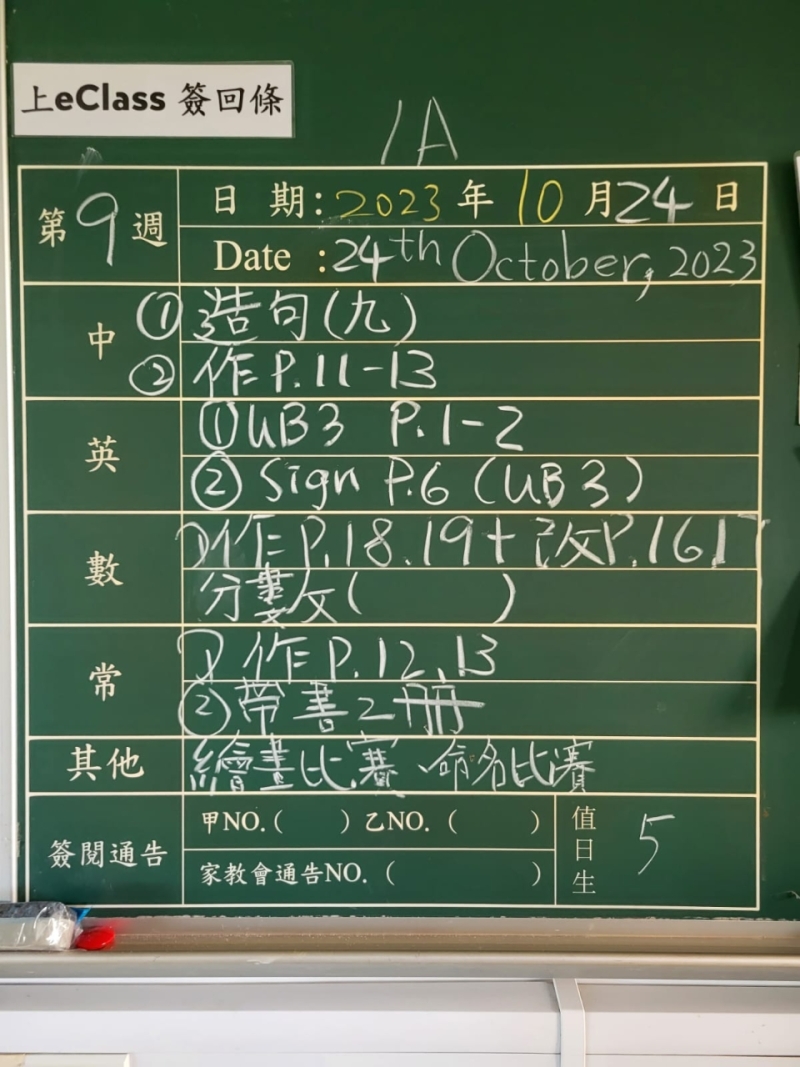 上eClass 簽回條
1A
第9週
日 期:2023年10月24日
Date :24th October, 2023
中
①造句(九)
②作P.11-13
英
①UB3 P.1-2
②Sign P.6 (UB3)
數
作P.18.19+改P.16
分數
常
作P.12,13
②帶書二冊
其他
繪畫比賽、命名比賽
簽閱通告
甲NO.( )乙NO.( )
家教會通告NO.( )
值日生
5